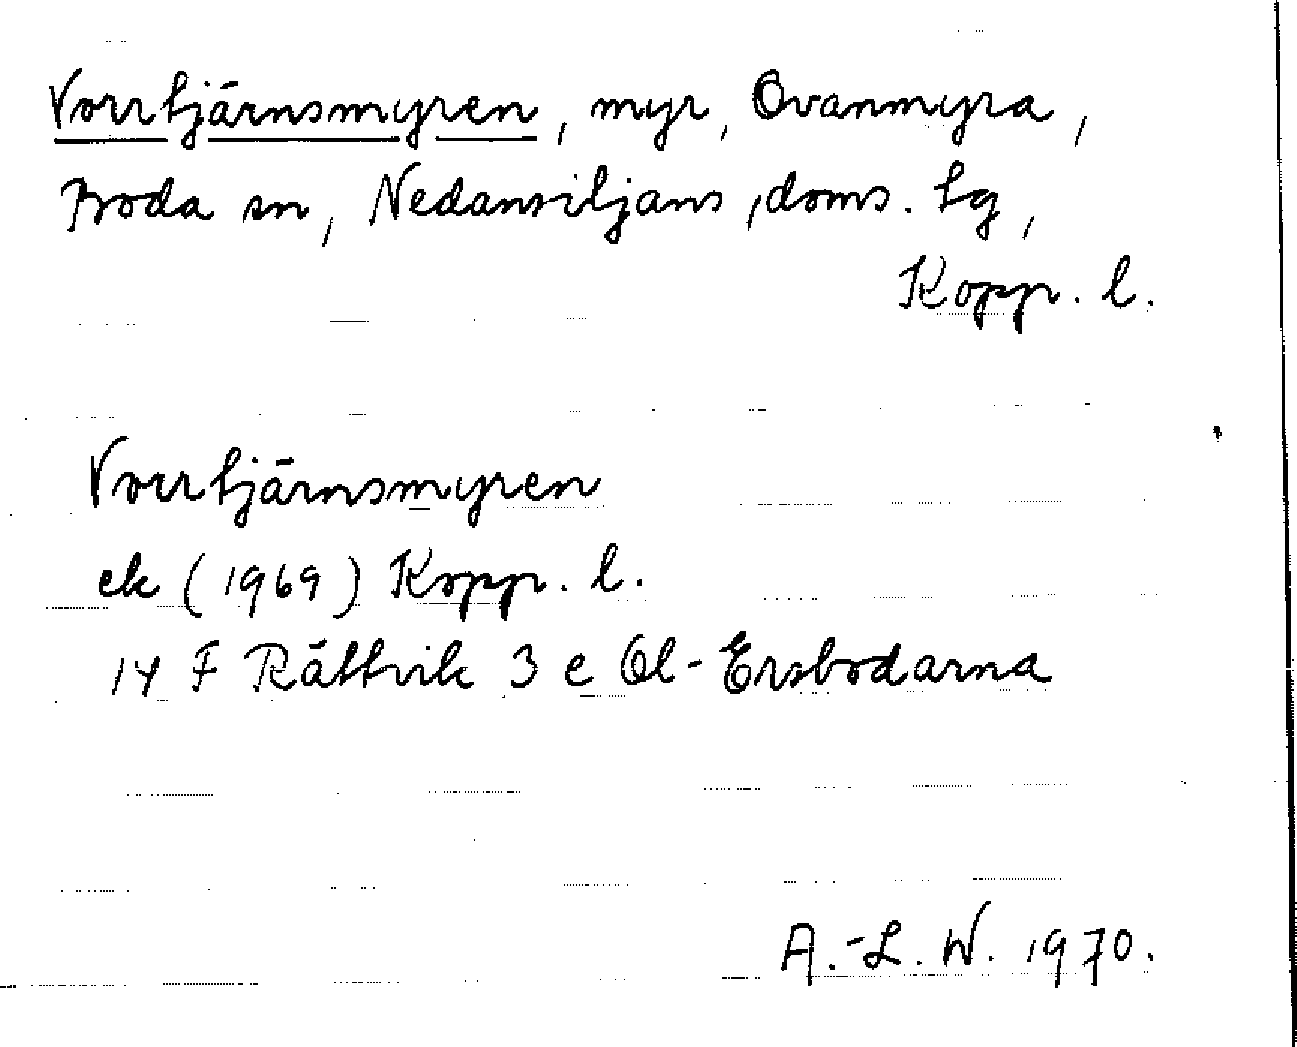 Vorrtjärnsmyren, myr, Ovanmyra,
Boda sn, Nedansiljans doms. tg,
Kopp. l.
Vorrtjärnsmyren
ek (1969) Kopp. l.
14 F Rättvik 3 e Ol-Ersbodarna
A.-L. W. 1970.